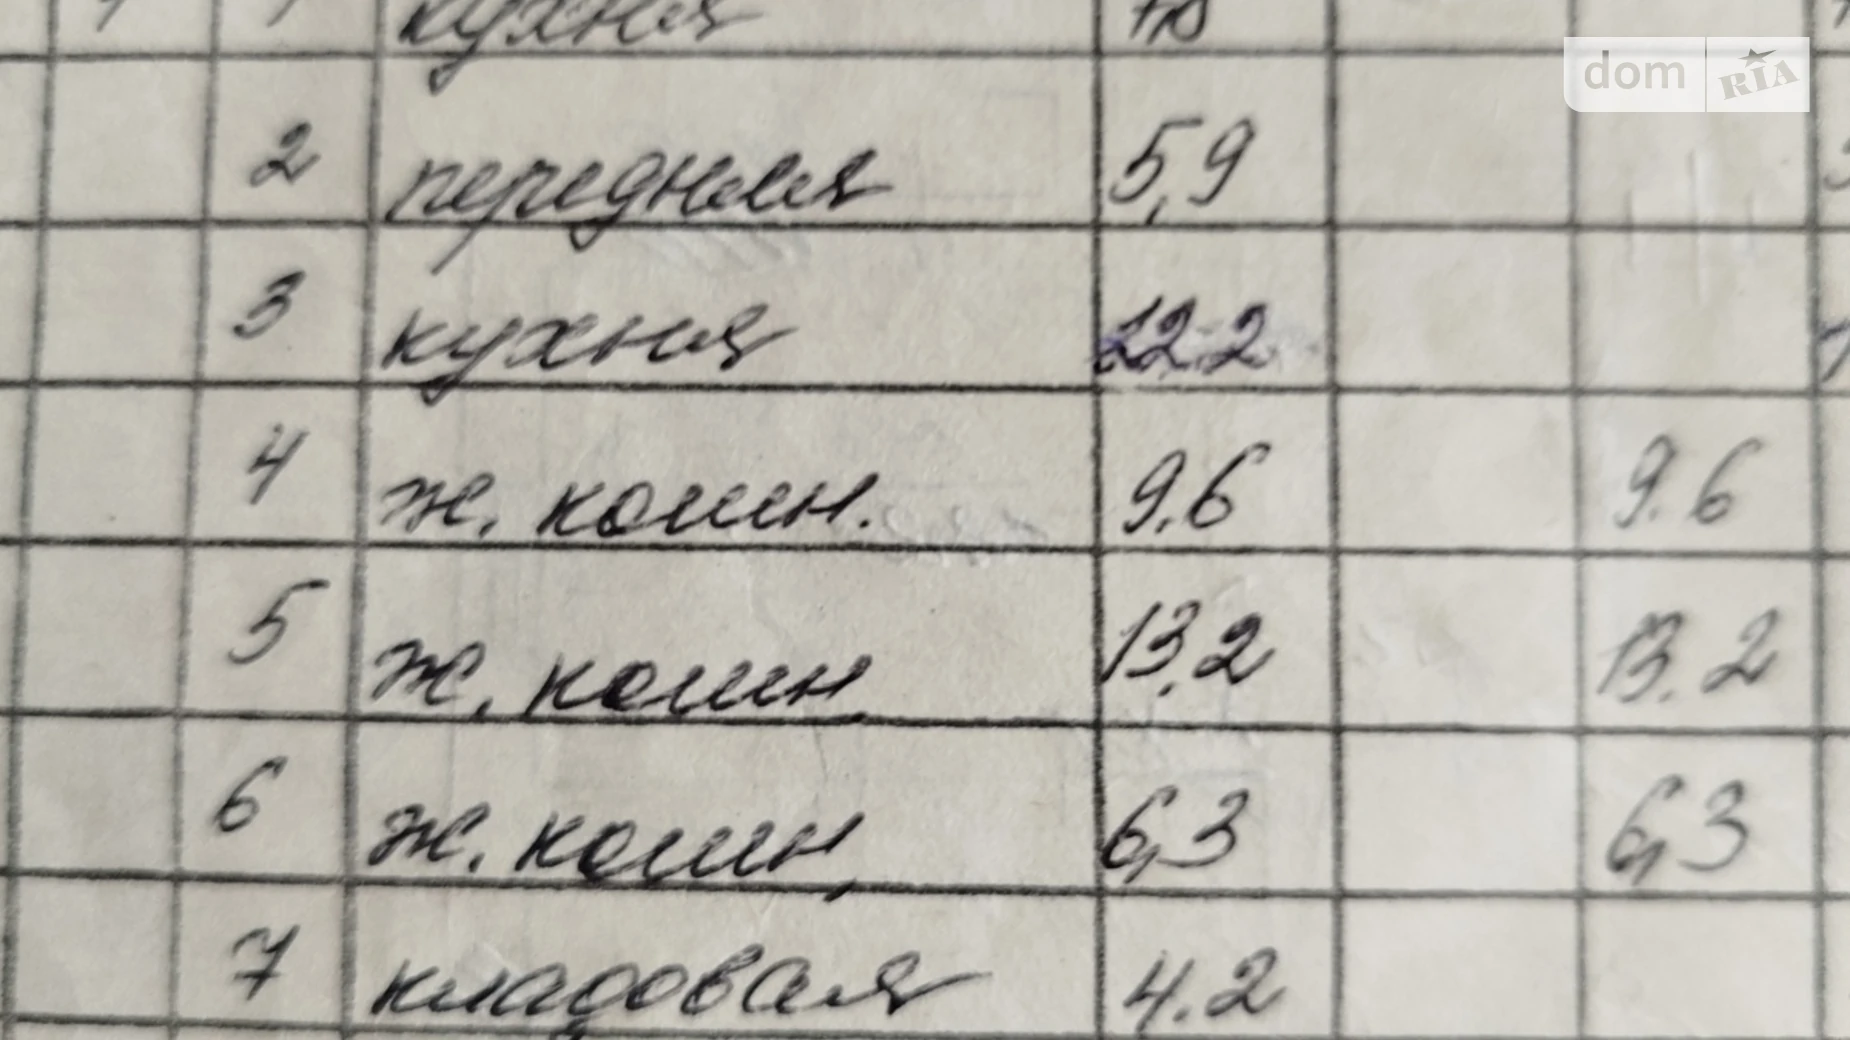 кухня
2 передняя 5,9
3 кухня 12.2
4 ж. комн. 9.6 9.6
5 ж. комн. 13,2 13.2
6 ж. комн. 6,3 6,3
7 кладовая 4.2
dom RIA